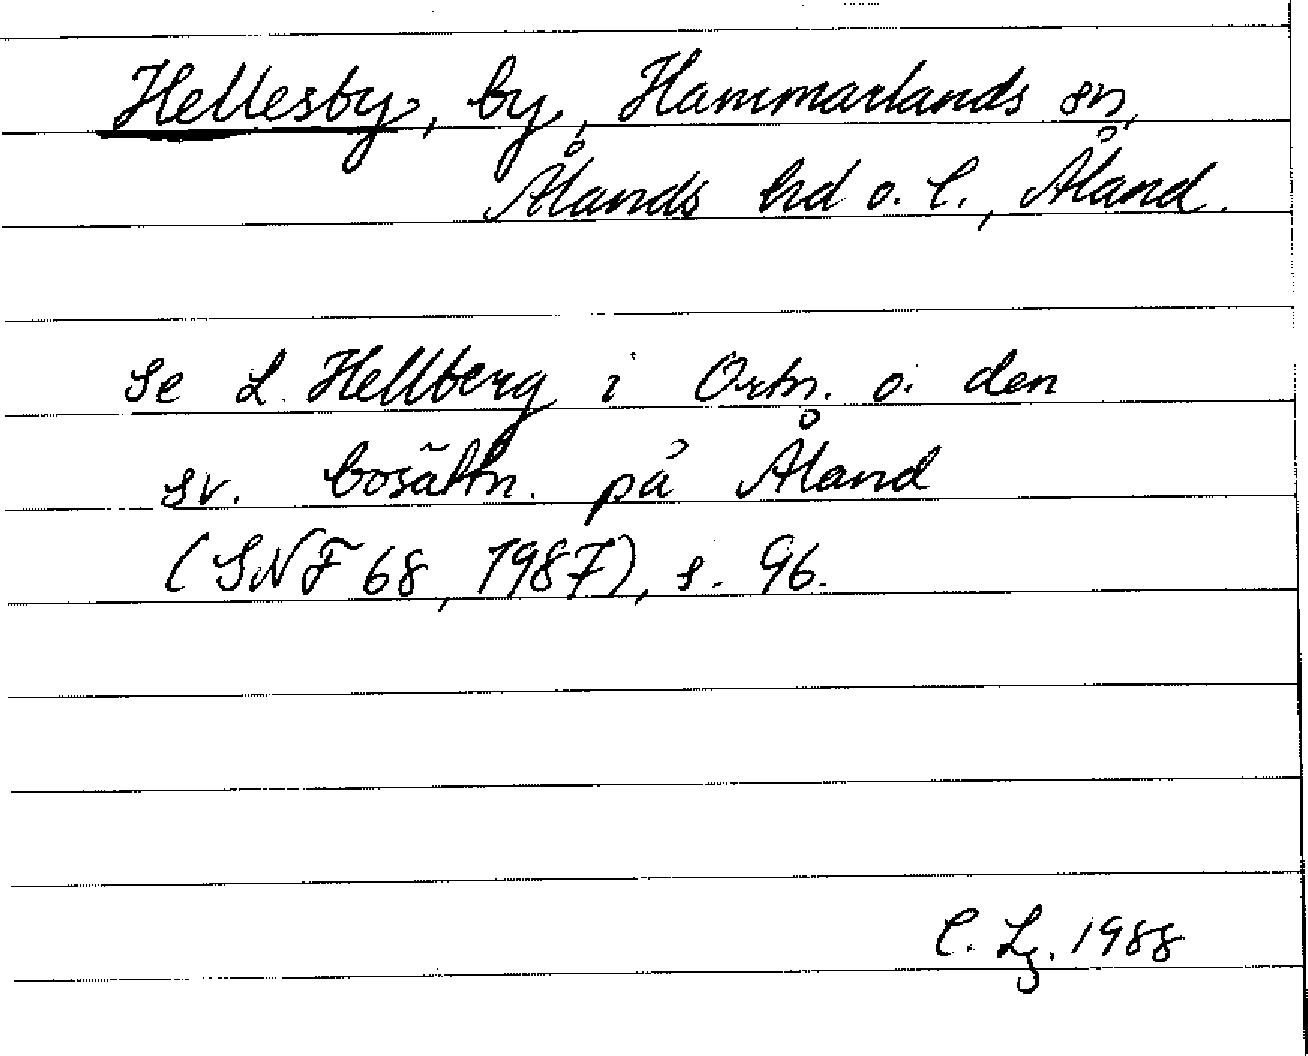 Hellesby, by, Hammarlands sn,
Ålands hd o. l., Åland.
Se L. Hellberg i Ortn. o. den
sv. bosättn. på Åland
(SNF 68, 1987), s. 96.
C. Lg. 1988